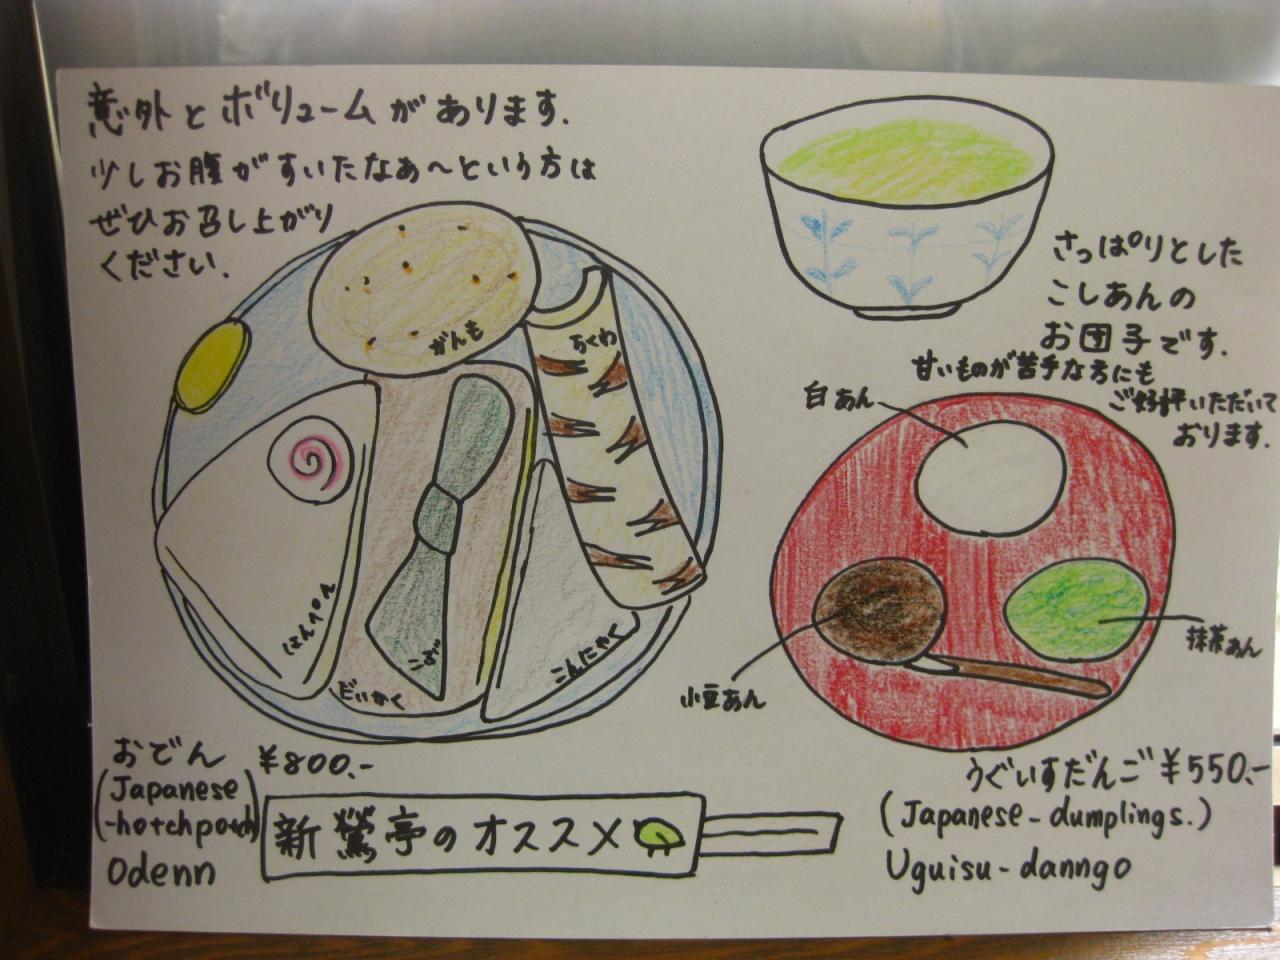 意外とボリュームがあります.
少しお腹がすいたなあ〜という方は
ぜひお召し上がり
ください.
がんも
ちくわ
はんぺん
こぶ
だいかく
こんにゃく
おでん ¥800.-
(Japanese
-hotchpotch)
Odenn
さっぱりとした
こしあんの
お団子です.
甘いものが苦手な方にも
ご好評いただいて
おります.
白あん
小豆あん
抹茶あん
うぐいすだんご ¥550.-
(Japanese-dumplings.)
Uguisu-danngo
新鶯亭のオススメ